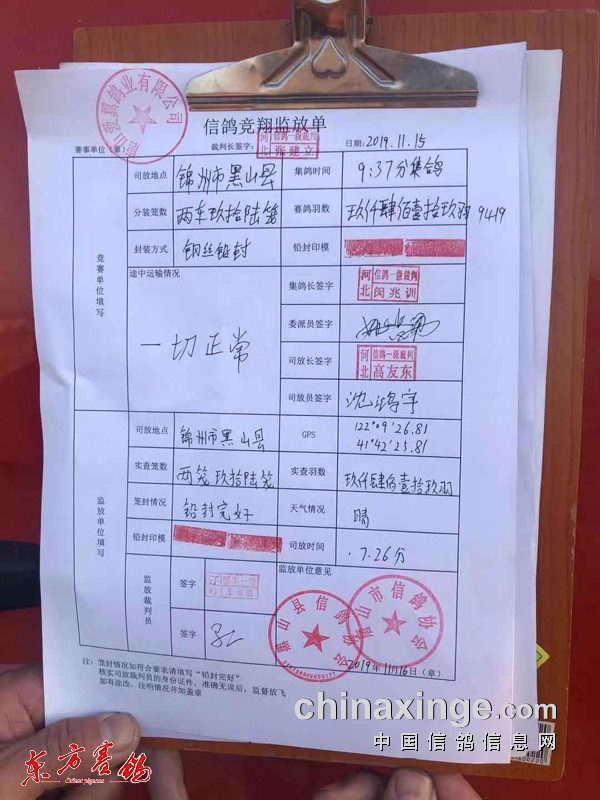 信鸽竞翔监放单
赛事单位（章） 裁判长签字： 河北 信鸽一级裁判 张建立 日期：2019.11.15
竞赛单位填写
司放地点 锦州市黑山县 集鸽时间 9:37分集鸽
分装笼数 两车玖拾陆笼 赛鸽羽数 玖仟肆佰壹拾玖羽 9419
封装方式 钢丝铅封 铅封印模
途中运输情况 一切正常
集鸽长签字 河北 信鸽一级裁判 闵兆训
委派员签字
司放长签字 河北 信鸽一级裁判 高友东
司放员签字 沈鸿宇
监放单位填写
司放地点 锦州市黑山县 GPS 122°09'26.81 41°42'25.81
实查笼数 两笼玖拾陆笼 实查羽数 玖仟肆佰壹拾玖羽
笼封情况 铅封完好 天气情况 晴
铅封印模 司放时间 7.26分
监放裁判员 签字 监放单位意见
签字
黑山县信鸽协会
唐山市信鸽协会
2019年11月16日（章）
注：笼封情况如符合要求请填写“铅封完好”
核实司放裁判员的身份证件，准确无误后，监督放飞
如有涂改，注明情况并加盖章
chinaxinge.com
中国信鸽信息网
东方赛鸽